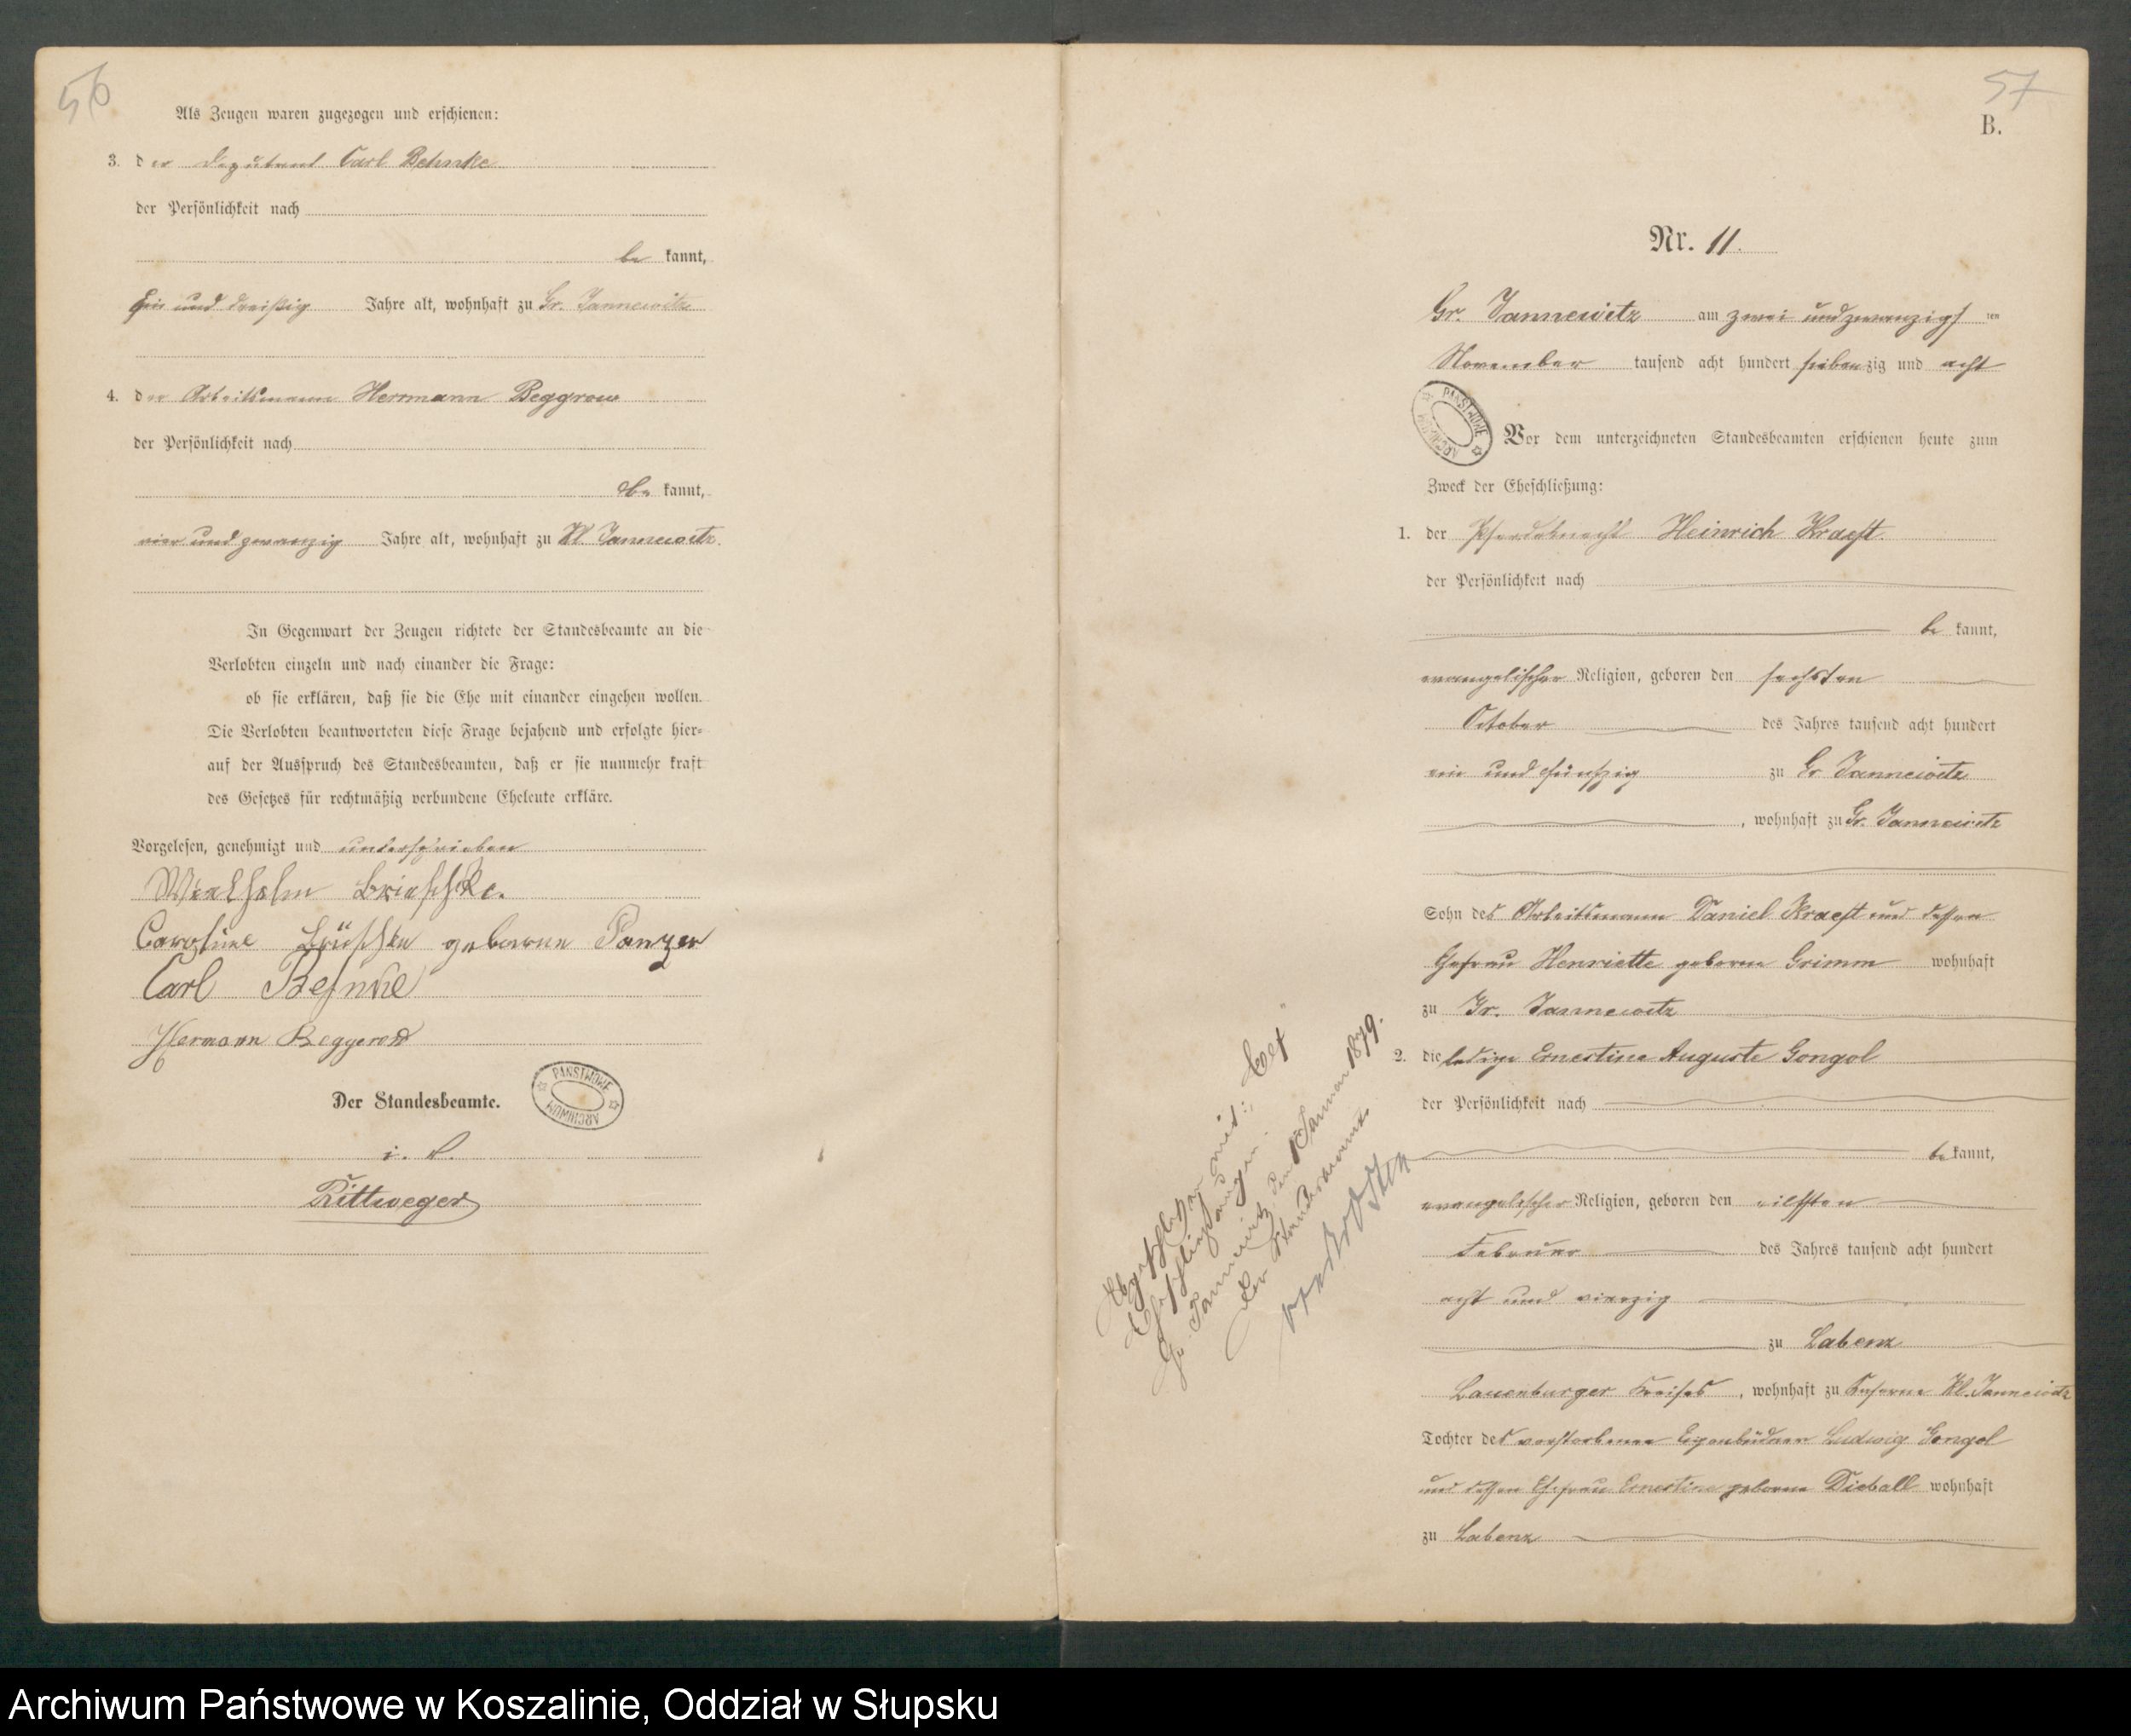 56
Als Zeugen waren zugezogen und erschienen:
3. der Deputant Carl Behnke
der Persönlichkeit nach
be kannt,
Ein und dreißig Jahre alt, wohnhaft zu Gr. Jannewitz
4. der Arbeitsmann Herrmann Beggrow
der Persönlichkeit nach
be kannt,
vier und zwanzig Jahre alt, wohnhaft zu Kl. Jannewitz.
In Gegenwart der Zeugen richtete der Standesbeamte an die
Verlobten einzeln und nach einander die Frage:
ob sie erklären, daß sie die Ehe mit einander eingehen wollen.
Die Verlobten beantworteten diese Frage bejahend und erfolgte hier=
auf der Ausspruch des Standesbeamten, daß er sie nunmehr kraft
des Gesetzes für rechtmäßig verbundene Eheleute erkläre.
Vorgelesen, genehmigt und unterschrieben
Caroline geborene Panzer
Carl Behnke
Hermann Beggerow
Der Standesbeamte.
PAŃSTWOWE ARCHIWUM
Rittweger
57
B.
Nr. 11.
Gr. Jannewitz am zwei und zwanzigs ten
November tausend acht hundert siebenzig und acht
PAŃSTWOWE ARCHIWUM
Vor dem unterzeichneten Standesbeamten erschienen heute zum
Zweck der Eheschließung:
1. der Pferdeknecht Heinrich Kraeft
der Persönlichkeit nach
be kannt,
evangelischer Religion, geboren den sechsten
October des Jahres tausend acht hundert
ein und fünfzig zu Gr. Jannewitz
, wohnhaft zu Gr. Jannewitz
Sohn des Arbeitsmann Daniel Kraeft und dessen
Ehefrau Henriette geborene Grimm wohnhaft
zu Gr. Jannewitz
2. die ledige Ernestine Auguste Gongol
der Persönlichkeit nach
be kannt,
evangelischer Religion, geboren den eilften
Februar des Jahres tausend acht hundert
acht und vierzig
zu Labenz
Lauenburger Kreises, wohnhaft zu Kl. Jannewitz
Tochter des verstorbenen Eigenbüdner Ludwig Gongol
und dessen Ehefrau Ernestine geborene Dieball wohnhaft
zu Labenz
Abgeschlossen mit: Elf
Eheschließungen.
Gr. Jannewitz, den 1 Januar 1879.
Der Standesbeamte
Archiwum Państwowe w Koszalinie, Oddział w Słupsku